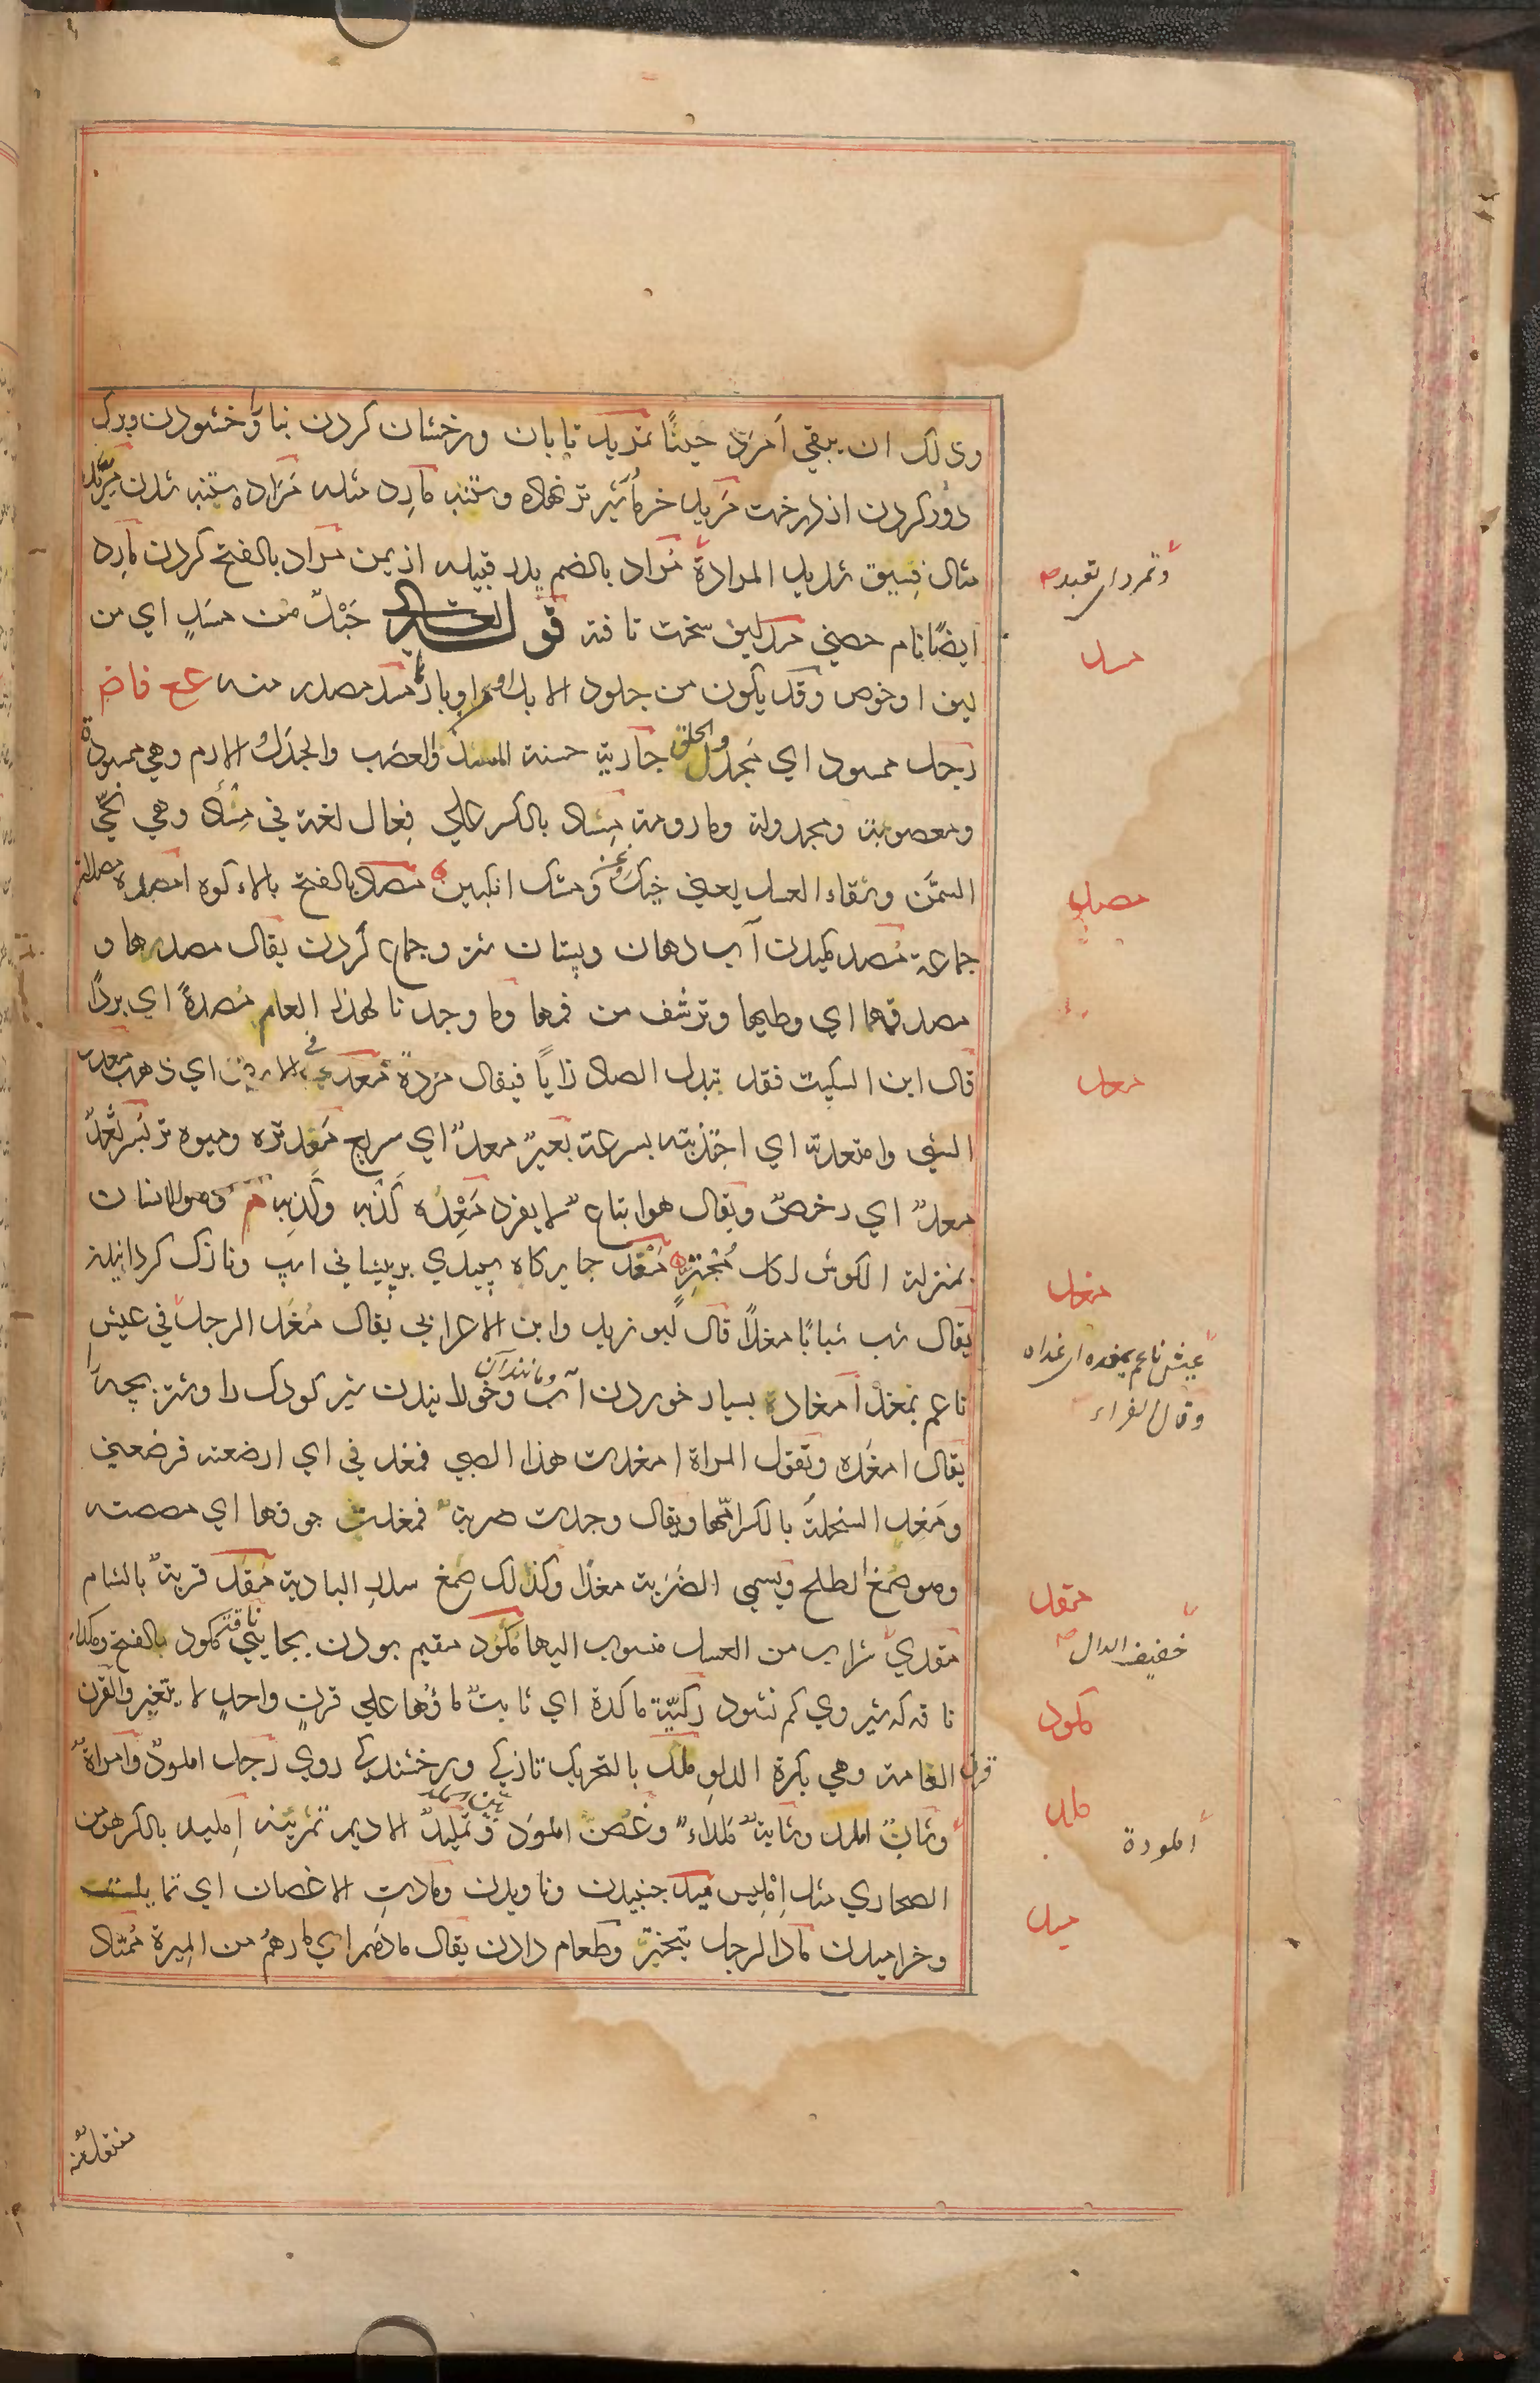 وذلك ان يبقي أمرد حينًا تمريد تابان ودرخشان كردن بنا وخشودن وبرك
دور كردن از درخت مريد خرما بشير تر نهاده وستنبه مارد مثله مرادة ستنبه شدن مِرّيد
مثال فسيق شديد المرادة مُراد بالضم پدر قبيله از يمن مَراد بالفتح كردن مارد
ايضًا نام حصني مسد ليف سخت تافته قوله تعالى حَبْلٌ من مسَدٍ اي من
ليف او خوص وقد يكون من جلود الابل او من اوبارها مَسْد مصدر منه ع ع فاض
رجل ممسود اي مجدول الخلق جارية حسنة المسد والعصب والجدل والارم وهي ممسودة
ومعصوبة ومجدولة ومأرومة مِساد بالكسر علي فِعال لغة في مِسْأد وهي نِحْي
السمن وسقاء العسل يعني خيك روغن ومشك انكبين مَصاد بالفتح بالاء كوه امصدة
جماعة مَصْد مكيدن آب دهان وپستان شتر وجماع كردن يقال مصدرها و
مصدتها اي وطيها وترشف من فمها وما وجدنا لهذا العام مَصدةً اي بردًا
قال ابن السكيت فقد تبدل الصاد زايًا فيقال مزدةً مَعَد في الارض اي ذهب معدت
الشي وامتعدته اي اجتذبته بسرعة بعير معدٌ اي سريع مَعْد تره وميوه تر بُسر ثَعْدٌ
معدٌ اي رخصٌ ويقال هو اتباع لا يفرد مَعِدة كَلِمَة وكِلْمَة وهو للانسان
بمنزلة الكرش لكل مُجْتَرٍّ مَغْد جاي كاه سپيدي بر پيشاني اسپ ونازك كردانيدن
يقال شب شبابًا مغدًا قال ابو زيد وابن الاعرابي يقال مَغَد الرجل في عيش
ناعم يمغد امغاد بسيار خوردن آب ومانند آن وخورانيدن شير كودك را وشتر بچه را
يقال امغده وتقول المراة امغدت هذا الصبي فمغدني اي ارضعته فرضعني
ومَغد السخلة بالكسر امّها ويقال وجدت صربة فمغدت جوفها اي مصصته
وهو صمغ الطلح ويسمي الصَرَبة مغدًا وكذلك صمغ سدر البادية مَقَد قرية بالشام
مَقَديّ شراب من العسل منسوب اليها مُكود مقيم بودن بجايي ناقة مكود بالفتح ومكداء
ناقه كه شير وي كم نشود ركيّة ماكدة اي ثابت ماؤها علي قرنٍ واحدٍ لا يتغير والقرن
قرن القامة وهي بكرة الدلو ملد بالتحريك تازكي ودرخشندكي روي رجل املود وامراة
وشاب املد وشابة ملداء وغُصن املود وتمليد الاديم تمرينه اِمليد بالكسر من
الصحاري مثل اِمليس ميد جنبيدن وناويدن ومادت الاغصان اي تمايلت
وخراميدن مادَ الرجل تبختر وطعام دادن يقال مادهم اي مارهم من الميرة مُمتاد
وتمرد اي تعبد صح
مسد
مصد
معد
مغد
عيش ناعم يمغده اي غذاه
وقال الفراء
مقد
خفيف الدال صح
مكود
ملد
املودة
ميد